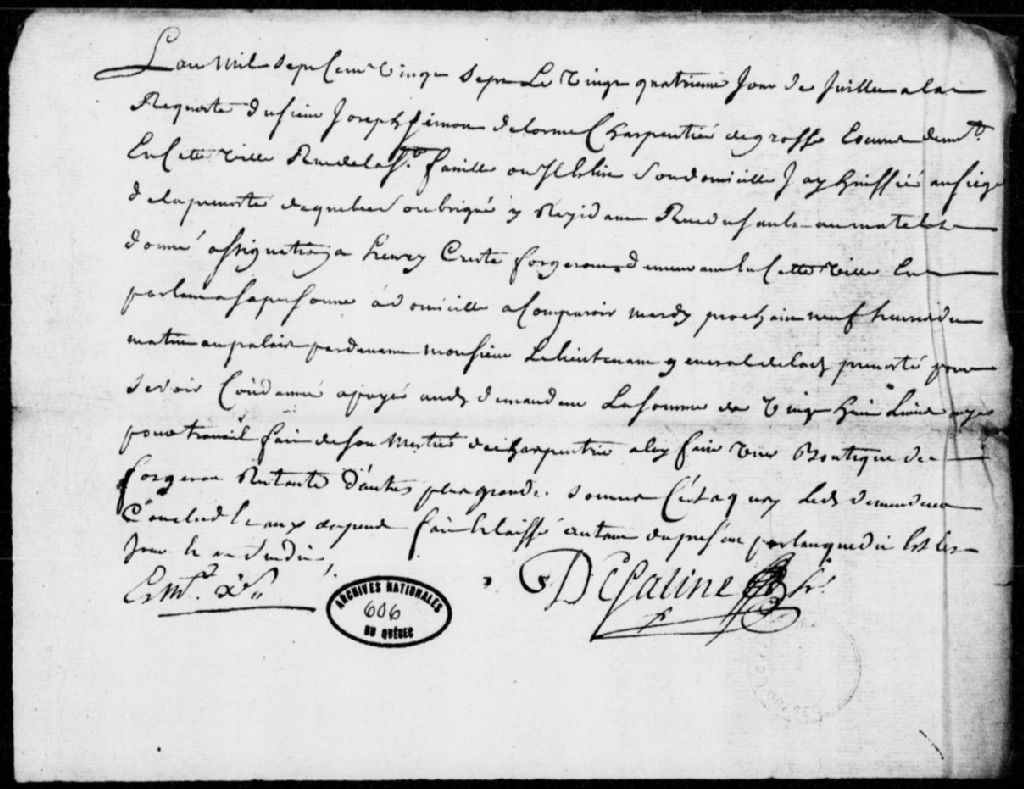 Lan Mil sept Cent Vingt Sept Le Vingt quatrieme Jour de Juillet a la
Requeste du sieur Joseph Simon delorme Charpentié de grosse
En Cette Ville Rue de la Ste. famille ou Il Elire Son domicille J ay huissié au siege
de la prevosté de quebec Soubsigné y Rezidant Rue du sault au matelot
donné assignation a henry Creste forgeron demeurant En Cette Ville En
parlant a sa personne a domicille a Comparoir mardy prochain neuf heures du
matin au palais pardevant monsieur Le lieutenant general de lad. prevosté pour
se voir Condamné a payé aud. demandeur La somme de Vingt huit Livres
pour travail fait de son Metier de Charpentie a luy faire Une Boutique de
forgeron Restante d'autre plus grande somme C'est a quoy Led. demandeur
Conclud Et aux depend fait Et laissé autant du present parlant que dit Est les
Jour Et an Susdit
DeSaline hr.
ARCHIVES NATIONALES
606
DU QUÉBEC